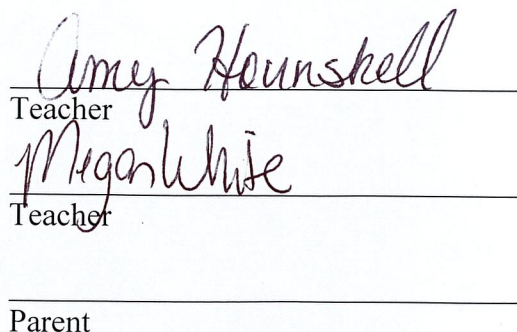 Amy Hounshell
Teacher
Megan White
Teacher
Parent